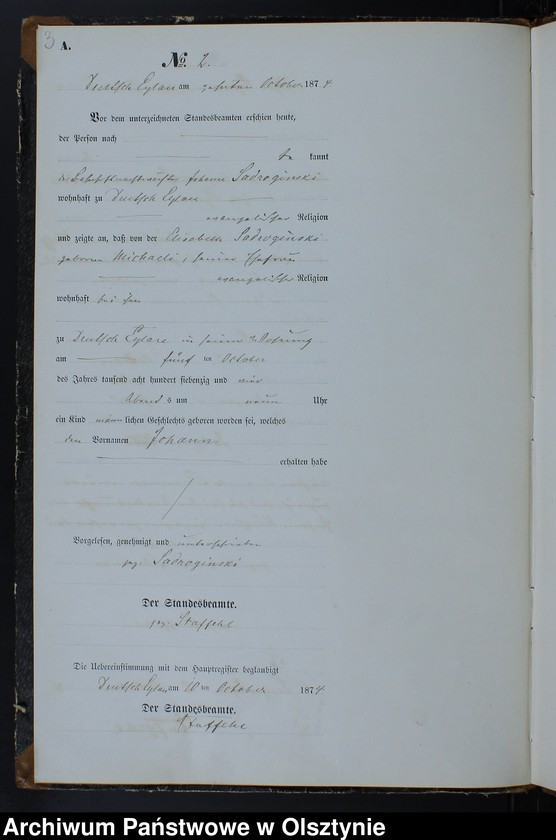 3
A.
No. 2.
Deutsch Eylau am zehnten October 1874
Vor dem unterzeichneten Standesbeamten erschien heute,
der Person nach
be kannt
der Johann Sadroginski
wohnhaft zu Deutsch Eylau
evangelischer Religion
und zeigte an, daß von der Elisabeth Sadroginski
geborene Michaeli, seiner Ehefrau
evangelischer Religion
wohnhaft bei ihm
zu Deutsch Eylau in seiner Wohnung
am fünf ten October
des Jahres tausend acht hundert siebenzig und vier
Abend s um neun Uhr
ein Kind männ lichen Geschlechts geboren worden sei, welches
den Vornamen Johann
erhalten habe
Vorgelesen, genehmigt und unterschrieben
gez. Sadroginski
Der Standesbeamte.
gez.
Die Uebereinstimmung mit dem Hauptregister beglaubigt
Deutsch Eylau am 10 ten October 1874
Der Standesbeamte.
Archiwum Państwowe w Olsztynie